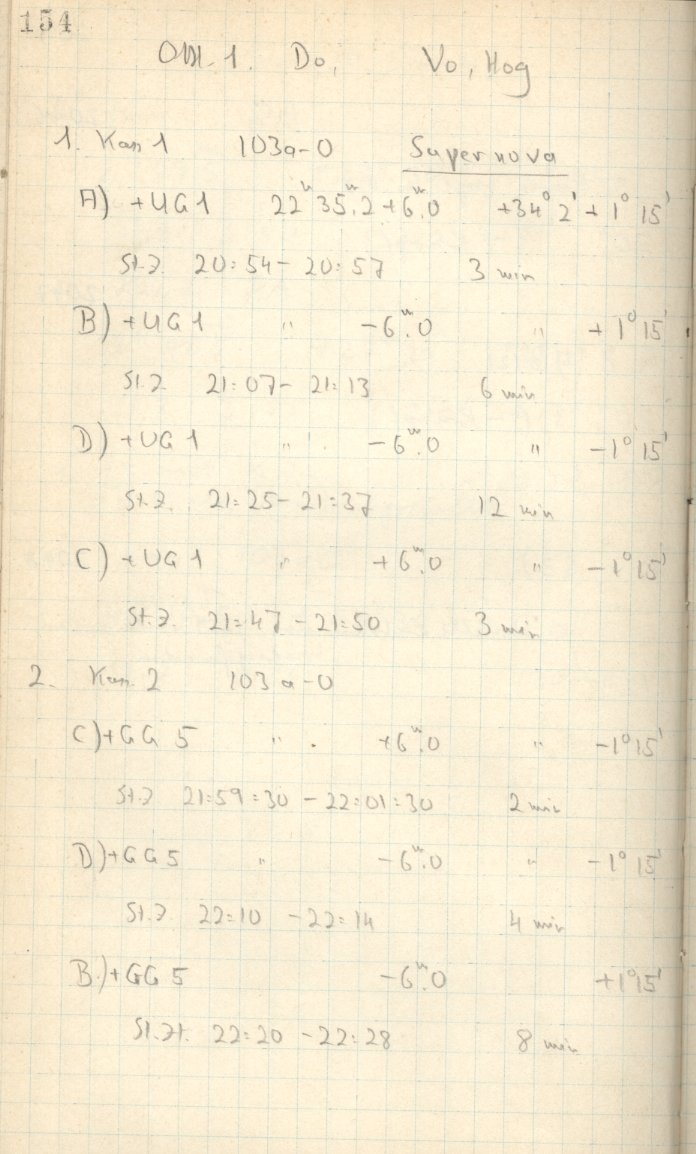 154
1. Do, Vo, Hog
1. Kas 1 103a-O Supernova
A) +UG1 22h 35m.2 +6m.0 +34° 2' + 1° 15'
St.Z. 20:54 - 20:57 3 min
B) +UG1 " -6m.0 " +1° 15'
St.Z. 21:07 - 21:13 6 min
D) +UG1 " -6m.0 " -1° 15'
St.Z. 21:25 - 21:37 12 min
C) +UG1 " +6m.0 " -1° 15'
St.Z. 21:47 - 21:50 3 min
2. Kas. 2 103a-O
C) +GG5 " +6m.0 " -1° 15'
St.Z. 21:59:30 - 22:01:30 2 min
D) +GG5 " -6m.0 " -1° 15'
St.Z. 22:10 - 22:14 4 min
B.) +GG5 -6m.0 +1° 15'
St.Zt. 22:20 - 22:28 8 min